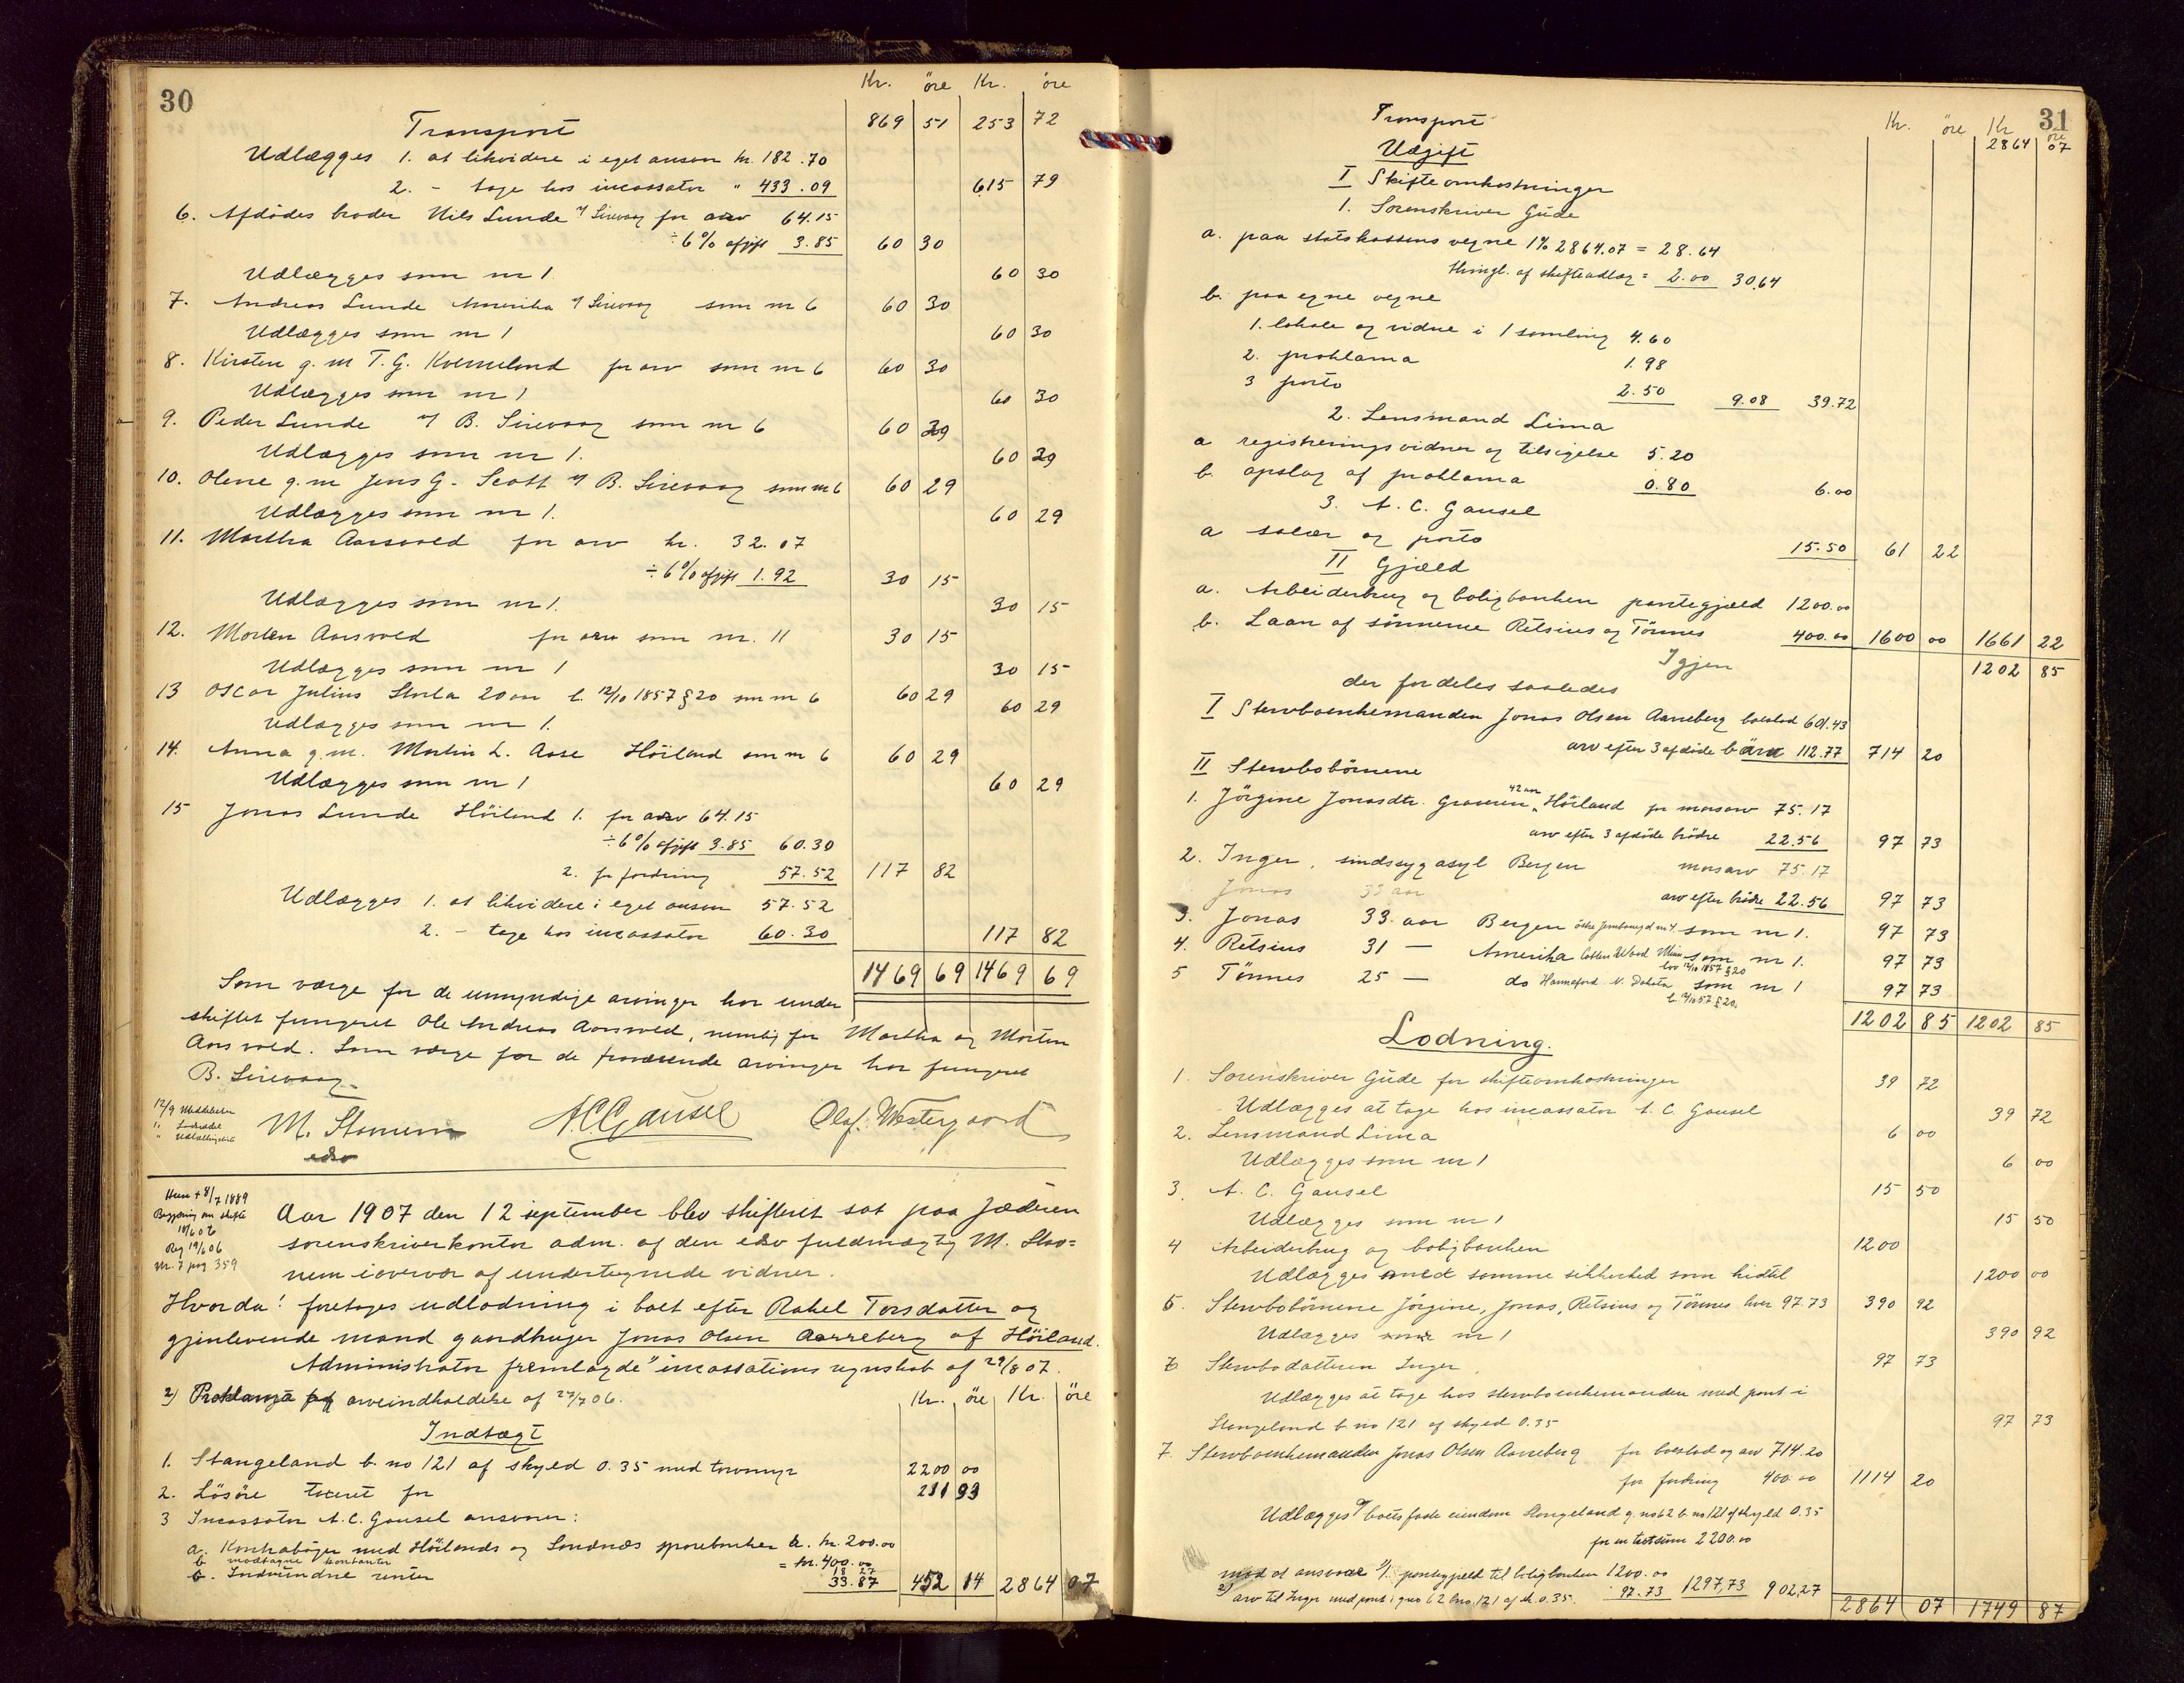 30
Kr. öre Kr. öre
Transport 869 51 253 72
Udlægges 1. at likvidere i eget ansvar kr. 182.70
2. - tage hos incassator " 433.09 615 79
6. Afdödes broder Nils Lunde Sirevaag for arv 64.15
÷ 6% afgift 3.85 60 30
Udlægges som nr 1. 60 30
7. Andreas Lunde Amerika Sirevaag som nr 6 60 30
Udlægges som nr 1 60 30
8. Kirsten g. m T. G. Kverneland for arv som nr 6 60 30
Udlægges som nr 1 60 30
9. Peder Lunde B. Sirevaag som nr 6 60 29
Udlægges som nr 1. 60 29
10. Olene g. m Jens G. Scott B. Sirevaag som nr 6 60 29
Udlægges som nr 1. 60 29
11. Martha Aarsvold for arv kr. 32.07
÷ 6% afgift 1.92 30 15
Udlægges som nr 1. 30 15
12. Morten Aarsvold for arv som nr. 11 30 15
Udlægges som nr 1 30 15
13 Oscar Julius 20 aar l. 12/10 1857 § 20 som nr 6 60 29
Udlægges som nr 1. 60 29
14. Anna g. m. Martin L. Aase Höiland som nr 6 60 29
Udlægges som nr 1 60 29
15 Jonas Lunde Höiland 1. for arv 64.15
÷ 6% afgift 3.85 60.30
2. for fordring 57.52 117 82
Udlægges 1. at likvidere i eget ansvar 57.52
2. - tage hos incassator 60.30 117 82
1469 69 1469 69
Som værge for de umyndige arvinger har under
skiftet fungeret Ole Andreas Aarsvold, nemlig for Martha og Morten
Aarsvold. Som værge for de fraværende arvinger har fungeret
B. Sirevaag.
12/9 Meddelelse
M. Stornem A.C. Gausel Olaf. Westergaard
edsv
Hun + 8/7 1889
Begjæring om skifte
18/6 06
Reg 19/6 06
nr. 7 pag 359
Aar 1907 den 12 september blev skifteret sat paa Jæderen
sorenskriverkontor adm. af den edsv fuldmægtig M. Stor=
nem i overvær af undertegnede vidner.
Hvorda! foretoges udlodning i boet efter Rakel Torsdatter og
gjenlevende mand gaardbruger Jonas Olsen Aarreberg af Höiland.
Administrator fremlagde 1) incassations regnskab af 29/8 07.
2) Proklama og arveindkaldelse af 27/7 06.
Kr. öre Kr. öre
Indtægt
1. Stangeland b. no 121 af skyld 0.35 med torvmyr 2200 00
2. Lösöre taxeret for 211 93
3 Incassator A. C. Gausel ansvarer:
a. Kontrabøger med Höilands og Sandnæs sparebanker à kr. 200.00 = kr. 400.00
b modtagne kontanter 18 27
c. Indvundne renter 33.87 452 14 2864 07
31
Kr. öre Kr öre
Transport 2864 07
Udgift
I Skifteomkostninger
1. Sorenskriver Gude
a. paa statskassens vegne 1% 2864.07 = 28.64
thingl. af skifteudlæg = 2.00 30.64
b. paa egne vegne
1. lokale og vidne i 1 samling 4.60
2. proklama 1.98
3 porto 2.50 9.08 39.72
2. Lensmand Lima
a registreringsvidner og tilsigelse 5.20
b. opslag af proklama 0.80 6.00
3. A. C. Gausel
a salær og porto 15.50 61 22
II Gjæld
a. Arbeiderbrug og boligbanken pantegjæld 1200.00
b. Laan af sönnerne Retsius og Tönnes 400.00 1600 00 1661 22
Igjen 1202 85
der fordeles saaledes
I Stervboenkemanden Jonas Olsen Aarreberg boeslod 601.43
arv efter 3 afdöde börn 112.77 714 20
II Stervbobörnene
1. Jörgine Jonasdtr. Graveren 42 aar Höiland for morsarv 75.17
arv efter 3 afdöde brödre 22.56 97 73
2. Inger, sindssygasyl Bergen morsarv 75.17
Jonas 33 aar arv efter brödre 22.56 97 73
3. Jonas 33. aar Bergen som nr 1. 97 73
4. Retsius 31 — Amerika som nr 1. 97 73
lov 12/10 1857 § 20
5 Tönnes 25 — do Hannaford N. Dakota som nr 1 97 73
l. 12/10 57 § 20.
1202 85 1202 85
Lodning.
1. Sorenskriver Gude for skifteomkostninger 39 72
Udlægges at tage hos incassator A. C. Gausel 39 72
2. Lensmand Lima 6 00
Udlægges som nr 1 6 00
3. A. C. Gausel 15 50
Udlægges som nr 1 15 50
4 Arbeiderbrug og boligbanken 1200
Udlægges med samme sikkerhed som hidtil 1200 00
5. Stervbobörnene Jörgine, Jonas, Retsius og Tönnes hver 97.73 390 92
Udlægges som nr 1 390 92
6 Stervbodatteren Inger 97 73
Udlægges at tage hos stervboenkemanden med pant i
Stangeland b. no 121 af skyld 0.35 97 73
7. Stervboenkemanden Jonas Olsen Aarreberg for boeslod og arv 714.20
for fordring 400.00 1114 20
Udlægges boets faste eiendom Stangeland g. no 62 b. no 121 af skyld 0.35
for en taxtsum 2200.00
mod at ansvare 1). pantegjæld til boligbanken 1200.00
2) arv til Inger med pant i gno 62 bno. 121 af sk. 0.35. 97.73 1297,73 902,27
2864 07 1749 87